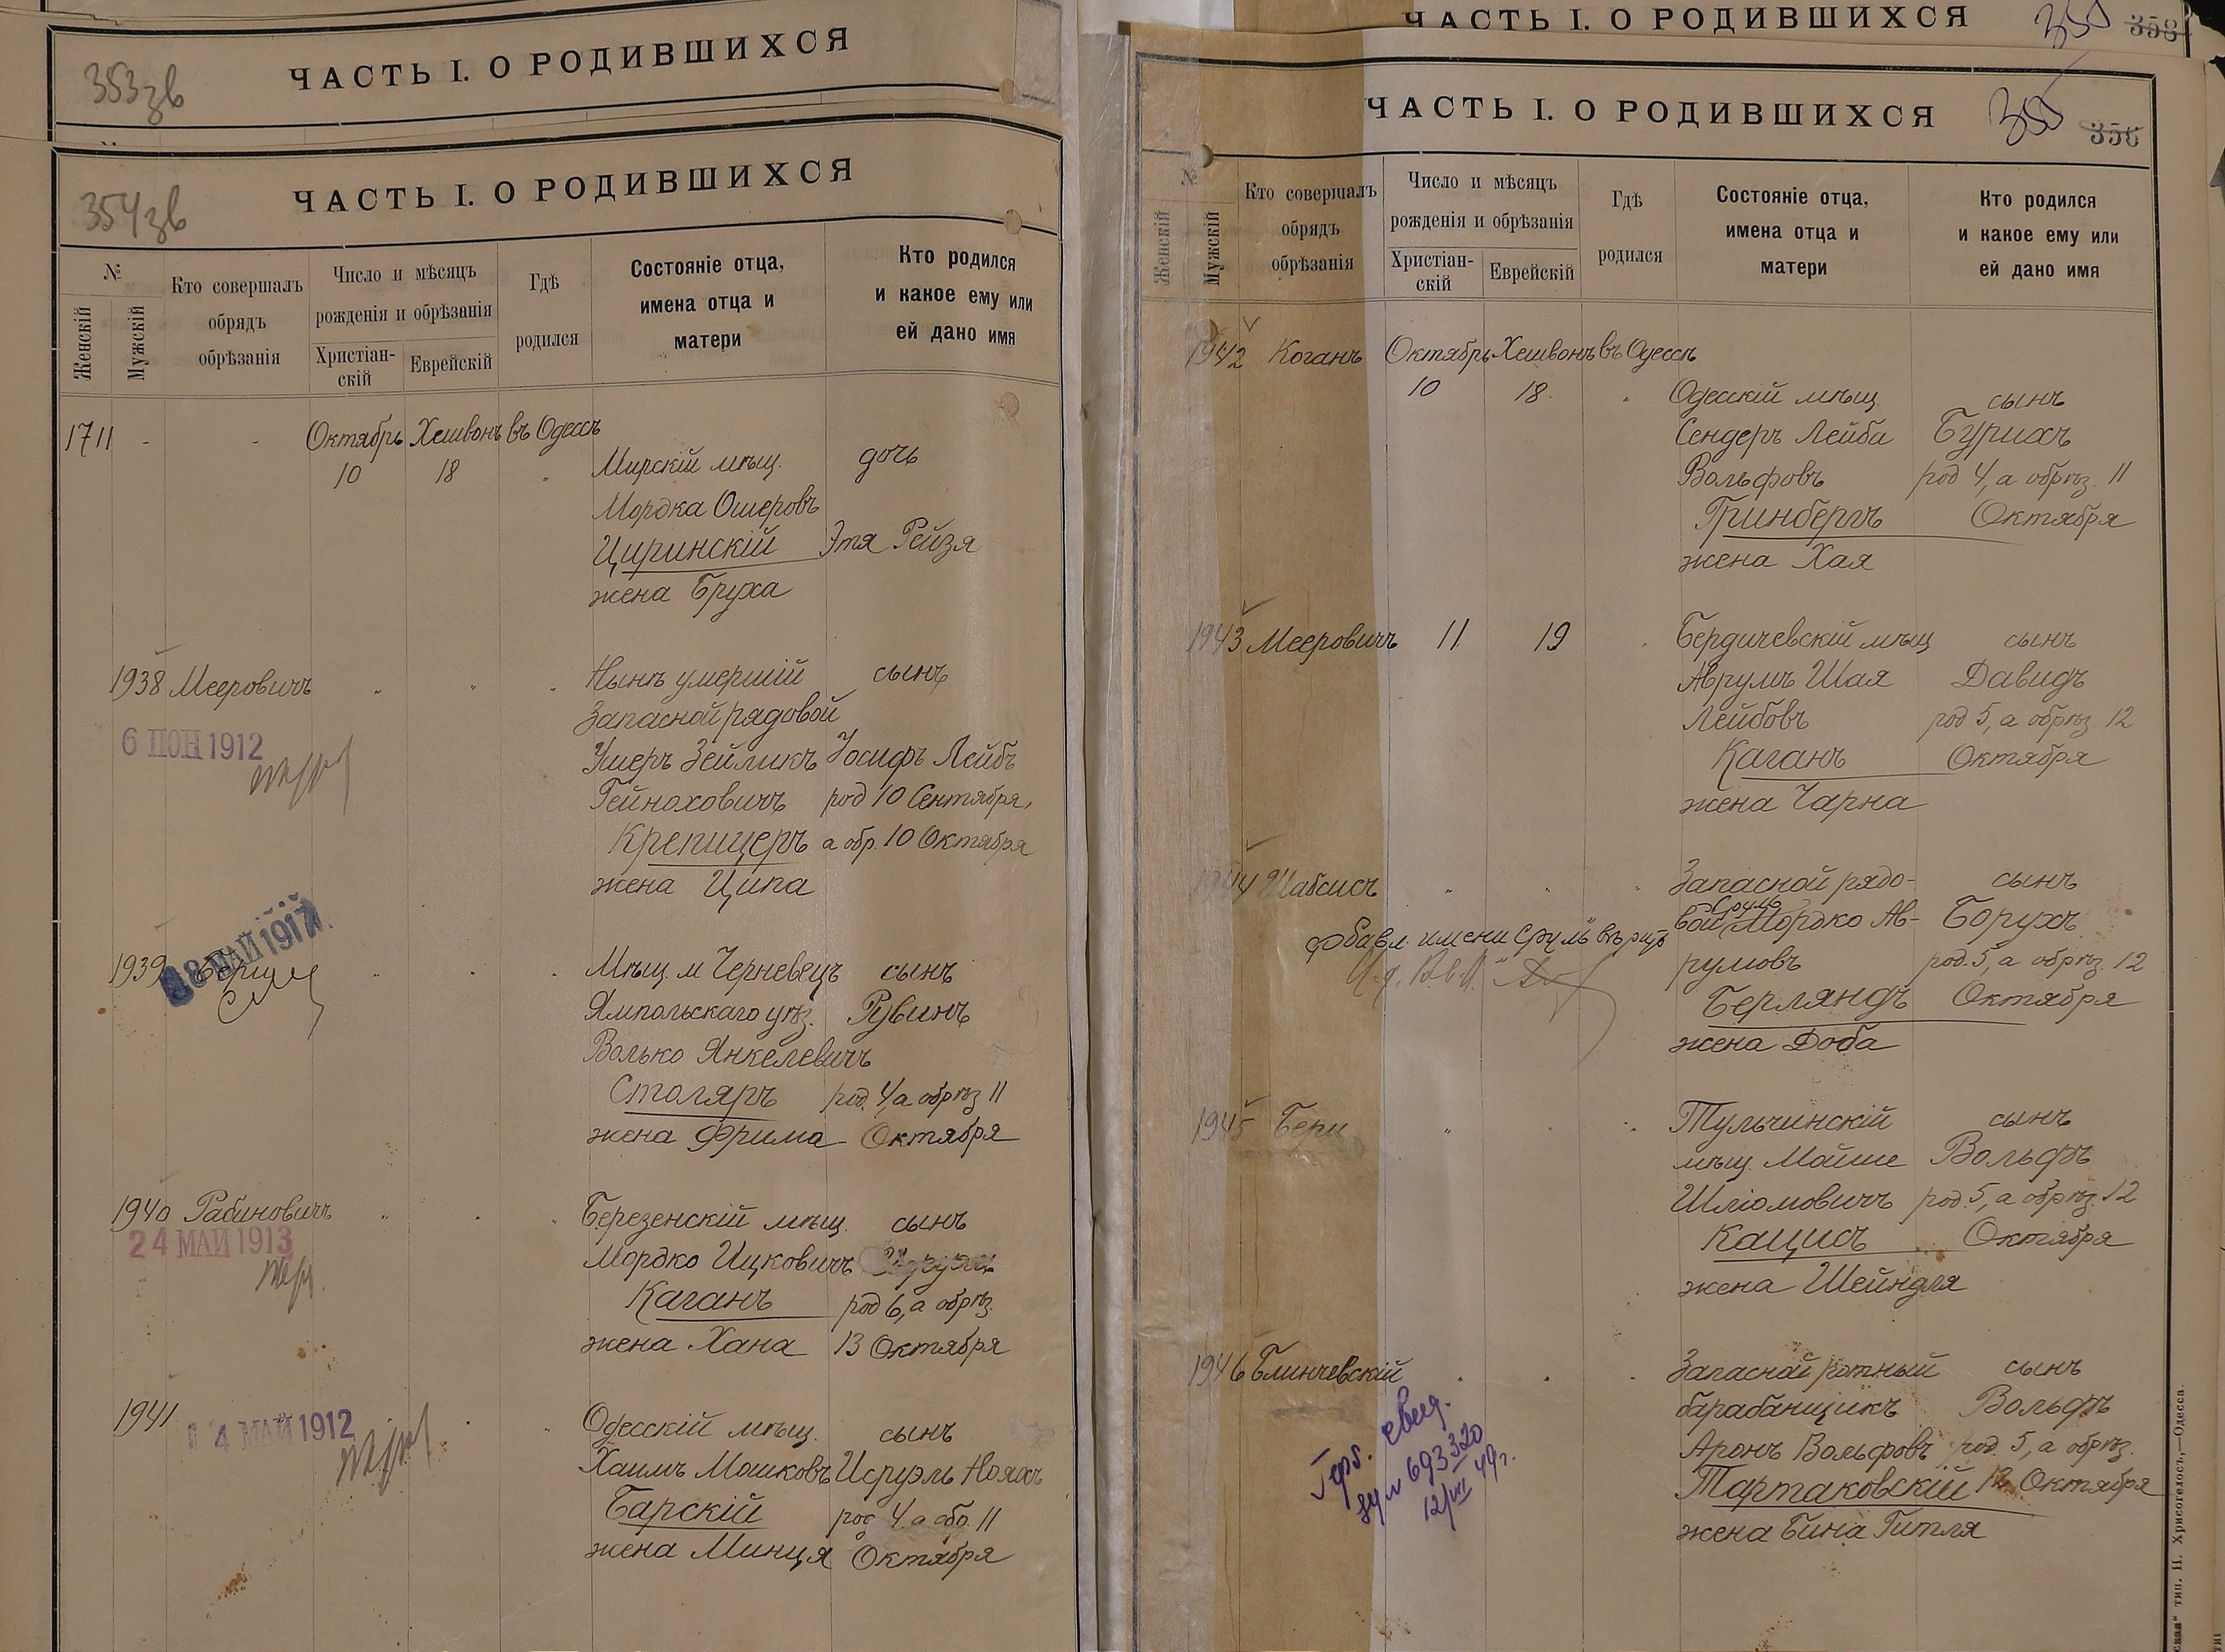 ЧАСТЬ I. О РОДИВШИХСЯ
353зв
ЧАСТЬ I. О РОДИВШИХСЯ
354зв
№
Женскій
Мужскій
Кто совершалъ
обрядъ
обрѣзанія
Число и мѣсяцъ
рожденія и обрѣзанія
Христіан-
скій
Еврейскій
Гдѣ
родился
Состояніе отца,
имена отца и
матери
Кто родился
и какое ему или
ей дано имя
1711 - - Октябрь Хешвонъ въ Одессѣ
10 18 " Мирскій мѣщ. дочь
Мордка Ошеровъ
Циринскій Этя Рейзя
жена Бруха
1938 Мееровичъ " " " Нынѣ умершій сынъ
Запасной рядовой
6 ІЮН 1912
Ушеръ Зейликъ Іосифъ Лейбъ
Гейноховичъ род 10 Сентября,
Крепицеръ а обр. 10 Октября
жена Ципа
8 МАЙ 1917
1939 " " " Мѣщ. м Черневецъ сынъ
Ямпольскаго уѣз. Рувинъ
Волько Янкелевичъ
Столяръ род. 4, а обрѣз 11
жена Фрима Октября
1940 Рабиновичъ " " " Березенскій мѣщ. сынъ
24 МАЙ 1913
Мордко Ицковичъ
Каганъ род 6, а обрѣз.
жена Хана 13 Октября
1941 " " Одесскій мѣщ. сынъ
4 МАЙ 1912
Хаимъ Мошковъ Исруэль Нояхъ
Барскій род 4. а обр. 11
жена Минця Октября
ЧАСТЬ I. О РОДИВШИХСЯ
355 358
ЧАСТЬ I. О РОДИВШИХСЯ
355
356
№
Женскій
Мужскій
Кто совершалъ
обрядъ
обрѣзанія
Число и мѣсяцъ
рожденія и обрѣзанія
Христіан-
скій
Еврейскій
Гдѣ
родился
Состояніе отца,
имена отца и
матери
Кто родился
и какое ему или
ей дано имя
1942 Коганъ Октябрь Хешвонъ въ Одессѣ
10 18. " Одесскій мѣщ. сынъ
Сендеръ Лейба Бурихъ
Вольфовъ род 4, а обрѣз. 11
Гринбергъ Октября
жена Хая
1943 Мееровичъ 11 19 " Бердичевскій мѣщ сынъ
Аврумъ Шая Давидъ
Лейбовъ род 5, а обрѣз. 12
Каганъ Октября
жена Чарна
1944 Шабсисъ " " " Запасной рядо- сынъ
Сруль
вой Мордко Ав- Борухъ
добавл. имени Сруль въ
румовъ род. 5, а обрѣз. 12
Берляндъ Октября
жена Доба
1945 Бери " " " Тульчинскій сынъ
мѣщ. Мойше Вольфъ
Шліомовичъ род. 5, а обрѣз. 12
Кацисъ Октября
жена Шейндля
1946 Блинчевскій " " " Запасной ротный сынъ
барабанщикъ Вольфъ
Аронъ Вольфовъ род. 5, а обрѣз.
Тартаковскій 12 Октября
жена Бина Гитля
свид.
693320
12/VII 49г.
тип. П. Хрисогелосъ,—Одесса.